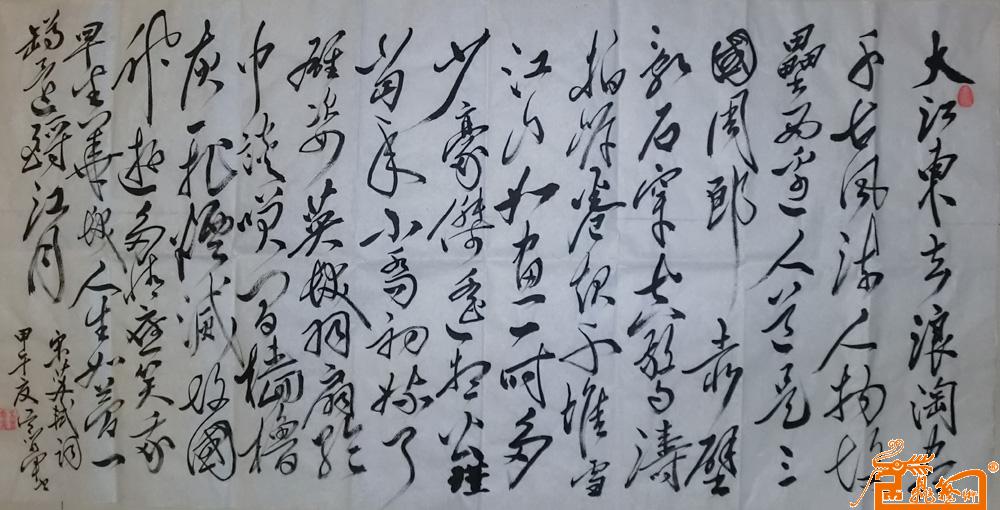 大江東去浪淘盡
千古風流人物故
壘西邊人道是三
國周郎赤壁
亂石穿空驚濤
拍岸卷起千堆雪
江山如畫一時多
少豪傑遙想公瑾
當年小喬初嫁了
雄姿英發羽扇綸
巾談笑間檣櫓
灰飛煙滅故國
神遊多情應笑我
早生華發人生如夢一
樽還酹江月
宋蘇軾詞
甲午夏